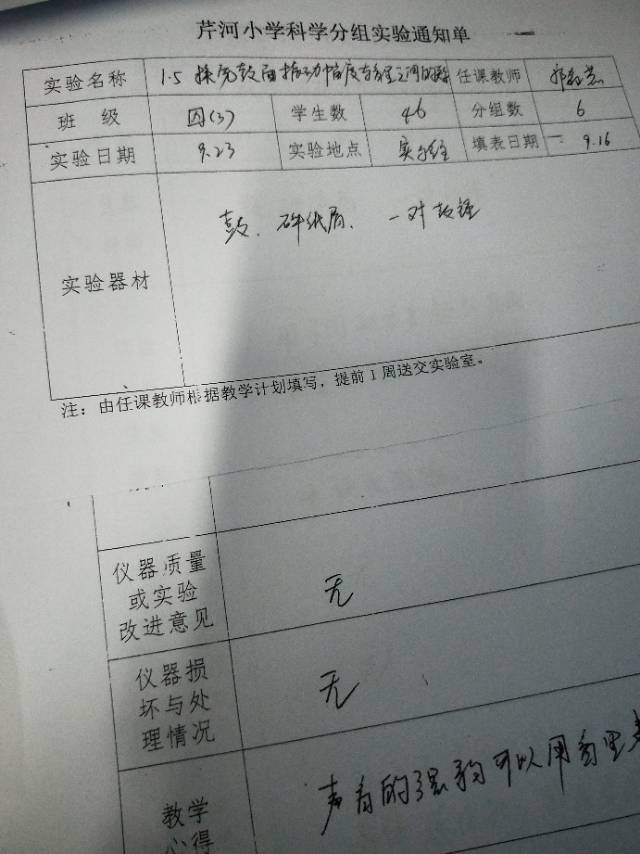 芹河小学科学分组实验通知单
实验名称 1.5 探究鼓面振动幅度与音量之间的 任课教师
班 级 四(3) 学生数 46 分组数 6
实验日期 9.23 实验地点 实验室 填表日期 9.16
实验器材 鼓、碎纸屑、一对鼓锤
注：由任课教师根据教学计划填写，提前1周送交实验室。
仪器质量
或实验
改进意见
无
仪器损
坏与处
理情况
无
教学
心得
声音的强弱可以用音量